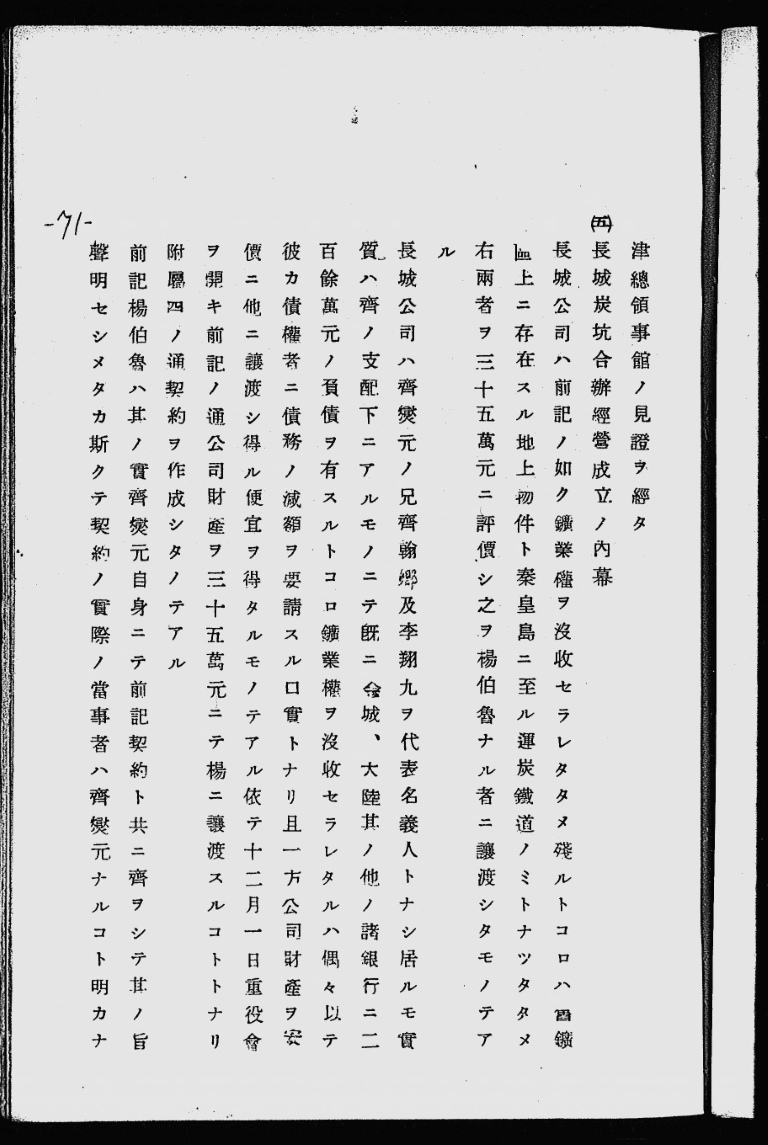 津總領事館ノ見證ヲ經タ
(五)長城炭坑合辦經營成立ノ內幕
長城公司ハ前記ノ如ク鑛業權ヲ沒收セラレタタメ殘ルトコロハ舊鑛
區上ニ存在スル地上物件ト秦皇島ニ至ル運炭鐵道ノミトナツタタメ
右兩者ヲ三十五萬元ニ評價シ之ヲ楊伯魯ナル者ニ讓渡シタモノテア
ル
長城公司ハ齊燮元ノ兄齊翰鄕及李翔九ヲ代表名義人トナシ居ルモ實
質ハ齊ノ支配下ニアルモノニテ旣ニ金城、大陸其ノ他ノ諸銀行ニ二
百餘萬元ノ負債ヲ有スルトコロ鑛業權ヲ沒收セラレタルハ偶々以テ
彼カ債權者ニ債務ノ減額ヲ要請スル口實トナリ且一方公司財產ヲ安
價ニ他ニ讓渡シ得ル便宜ヲ得タルモノテアル依テ十二月一日重役會
ヲ開キ前記ノ通公司財產ヲ三十五萬元ニテ楊ニ讓渡スルコトトナリ
附屬四ノ通契約ヲ作成シタノテアル
前記楊伯魯ハ其ノ實齊燮元自身ニテ前記契約ト共ニ齊ヲシテ其ノ旨
聲明セシメタカ斯クテ契約ノ實際ノ當事者ハ齊燮元ナルコト明カナ
-71-